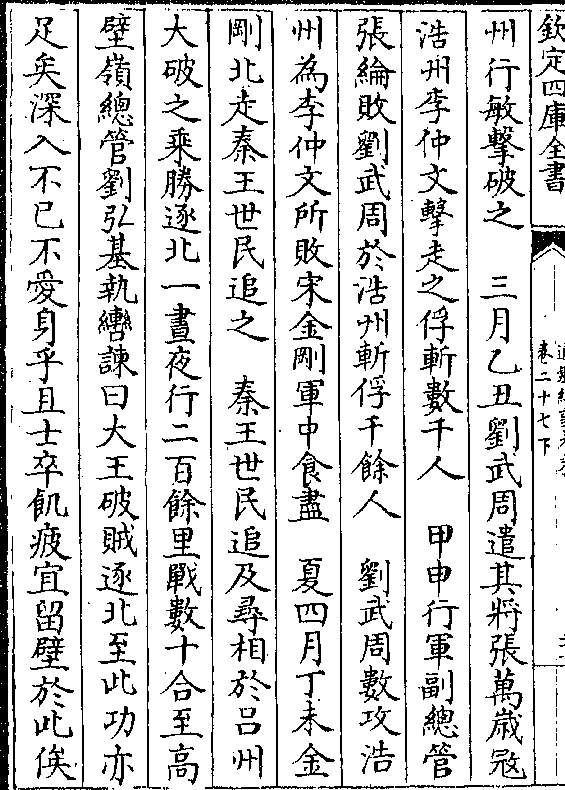 欽定四庫全書
卷二十七下
州行敏擊破之　三月乙丑劉武周遣其將張萬歲宼
浩州李仲文擊走之俘斬數千人　甲申行軍副總管
張綸敗劉武周於浩州斬俘千餘人　劉武周數攻浩
州為李仲文所敗宋金剛軍中食盡　夏四月丁未金
剛北走秦王世民追之　秦王世民追及尋相於吕州
大破之乘勝逐北一晝夜行二百餘里戰數十合至高
壁嶺總管劉弘基執轡諫曰大王破賊逐北至此功亦
足矣深入不已不愛身乎且士卒飢疲宜留壁於此俟